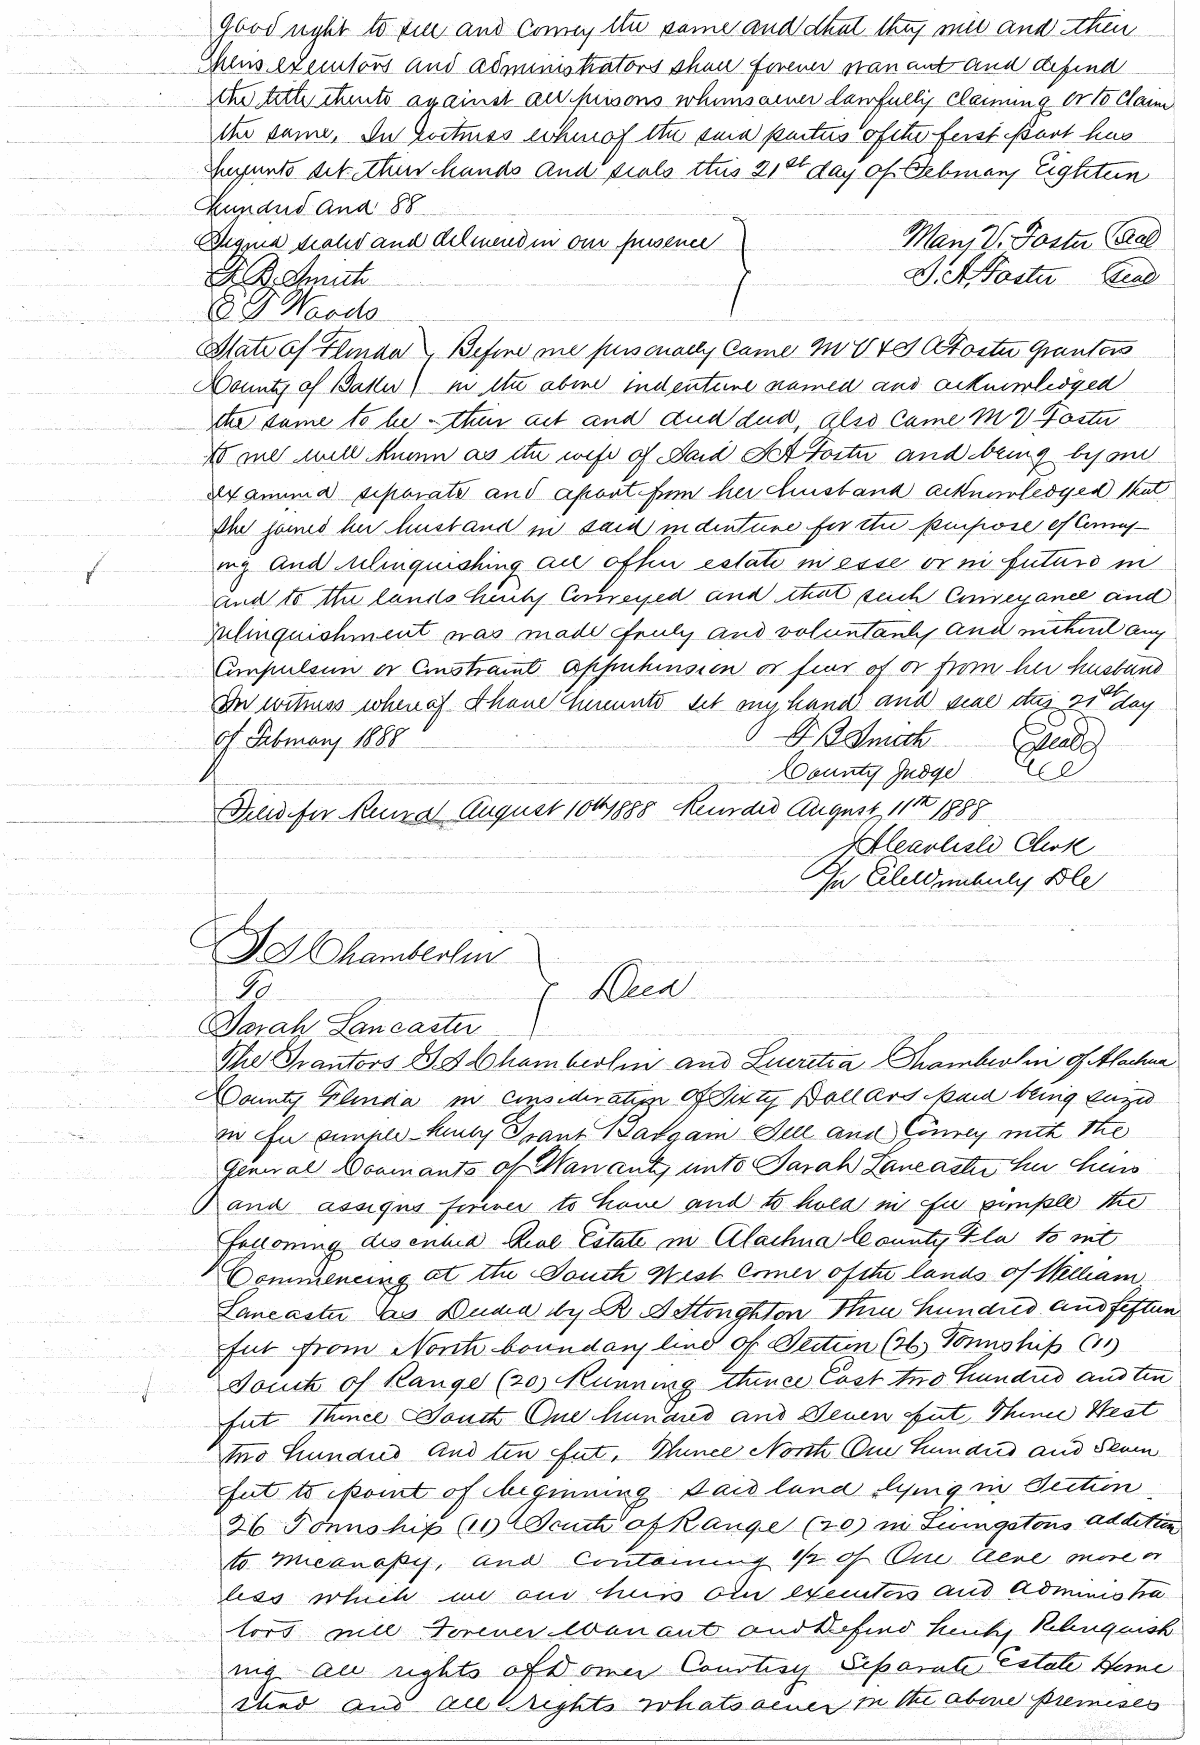 good right to sell and convey the same and that they will and their
heirs executors and administrators shall forever warrant and defend
the title thereto against all persons whomsoever lawfully claiming or to claim
the same. In witness whereof the said parties of the first part has
hereunto set their hands and seals this 21st day of February Eighteen
hundred and 88
Signed sealed and delivered in our presence
Mary V. Foster Seal
F. B. Smith
S. A. Foster Seal
Woods
State of Florida } Before me personally came M V & S A Foster Grantors
County of Baker } in the above indenture named and acknowledged
the same to be their act and deed, also came M V Foster
to me well known as the wife of said S A Foster and being by me
examined separate and apart from her husband acknowledged that
she joined her husband in said indenture for the purpose of convey-
ing and relinquishing all of her estate in esse or in futuro in
and to the lands hereby conveyed and that such conveyance and
relinquishment was made freely and voluntarily and without any
compulsion or constraint apprehension or fear of or from her husband
In witness whereof I have hereunto set my hand and seal this 21st day
of February 1888
F B Smith Seal
County Judge
Filed for Record August 10th 1888 Recorded August 11th 1888
Clerk
S S Chamberlin
To } Deed
Sarah Lancaster
The Grantors S S Chamberlin and Lucretia Chamberlin of Alachua
County Florida in consideration of Sixty Dollars paid being seized
in fee simple hereby Grant Bargain Sell and Convey with the
general Covenants of Warranty unto Sarah Lancaster her heirs
and assigns forever to have and to hold in fee simple the
following described Real Estate in Alachua County Fla to wit
Commencing at the South West corner of the lands of William
Lancaster as Deeded by R S Stoughton Three hundred and fifteen
feet from North boundary line of Section (26) Township (11)
South of Range (20) Running thence East two hundred and ten
feet Thence South One hundred and Seven feet, Thence West
two hundred and ten feet, Thence North One hundred and Seven
feet to point of beginning said land lying in Section
26 Township (11) South of Range (20) in Livingstons addition
to Micanopy, and containing 1/2 of One Acre more or
less which we our heirs our executors and administra
tors will Forever Warrant and Defend hereby Relinquish
ing all rights of Dower Courtesy Separate Estate Home
stead and all rights whatsoever in the above premises